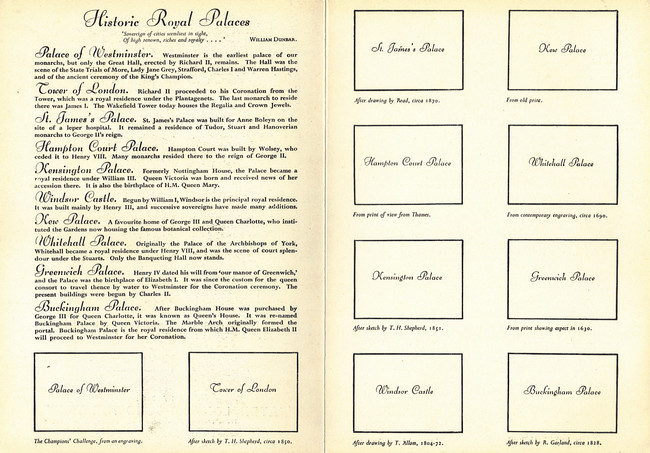 Historic Royal Palaces
'Sovereign of cities seemliest in sight,
Of high renown, riches and royalty . . . .'
WILLIAM DUNBAR.
Palace of Westminster. Westminster is the earliest palace of our
monarchs, but only the Great Hall, erected by Richard II, remains. The Hall was the
scene of the State Trials of More, Lady Jane Grey, Strafford, Charles I and Warren Hastings,
and of the ancient ceremony of the King's Champion.
Tower of London. Richard II proceeded to his Coronation from the
Tower, which was a royal residence under the Plantagenets. The last monarch to reside
there was James I. The Wakefield Tower today houses the Regalia and Crown Jewels.
St. James's Palace. St. James's Palace was built for Anne Boleyn on the
site of a leper hospital. It remained a residence of Tudor, Stuart and Hanoverian
monarchs to George II's reign.
Hampton Court Palace. Hampton Court was built by Wolsey, who
ceded it to Henry VIII. Many monarchs resided there to the reign of George II.
Kensington Palace. Formerly Nottingham House, the Palace became a
royal residence under William III. Queen Victoria was born and received news of her
accession there. It is also the birthplace of H.M. Queen Mary.
Windsor Castle. Begun by William I, Windsor is the principal royal residence.
It was built mainly by Henry III, and successive sovereigns have made many additions.
Kew Palace. A favourite home of George III and Queen Charlotte, who insti-
tuted the Gardens now housing the famous botanical collection.
Whitehall Palace. Originally the Palace of the Archbishops of York,
Whitehall became a royal residence under Henry VIII, and was the scene of court splen-
dour under the Stuarts. Only the Banqueting Hall now stands.
Greenwich Palace. Henry IV dated his will from 'our manor of Greenwich,'
and the Palace was the birthplace of Elizabeth I. It was since the custom for the queen
consort to travel thence by water to Westminster for the Coronation ceremony. The
present buildings were begun by Charles II.
Buckingham Palace. After Buckingham House was purchased by
George III for Queen Charlotte, it was known as Queen's House. It was re-named
Buckingham Palace by Queen Victoria. The Marble Arch originally formed the
portal. Buckingham Palace is the royal residence from which H.M. Queen Elizabeth II
will proceed to Westminster for her Coronation.
Palace of Westminster
The Champions' Challenge, from an engraving.
Tower of London
After sketch by T. H. Shepherd, circa 1850.
St. James's Palace
After drawing by Read, circa 1870.
Kew Palace
From old print.
Hampton Court Palace
From print of view from Thames.
Whitehall Palace
From contemporary engraving, circa 1690.
Kensington Palace
After sketch by T. H. Shepherd, 1851.
Greenwich Palace
From print showing aspect in 1630.
Windsor Castle
After drawing by T. Allom, 1804-72.
Buckingham Palace
After sketch by R. Garland, circa 1828.